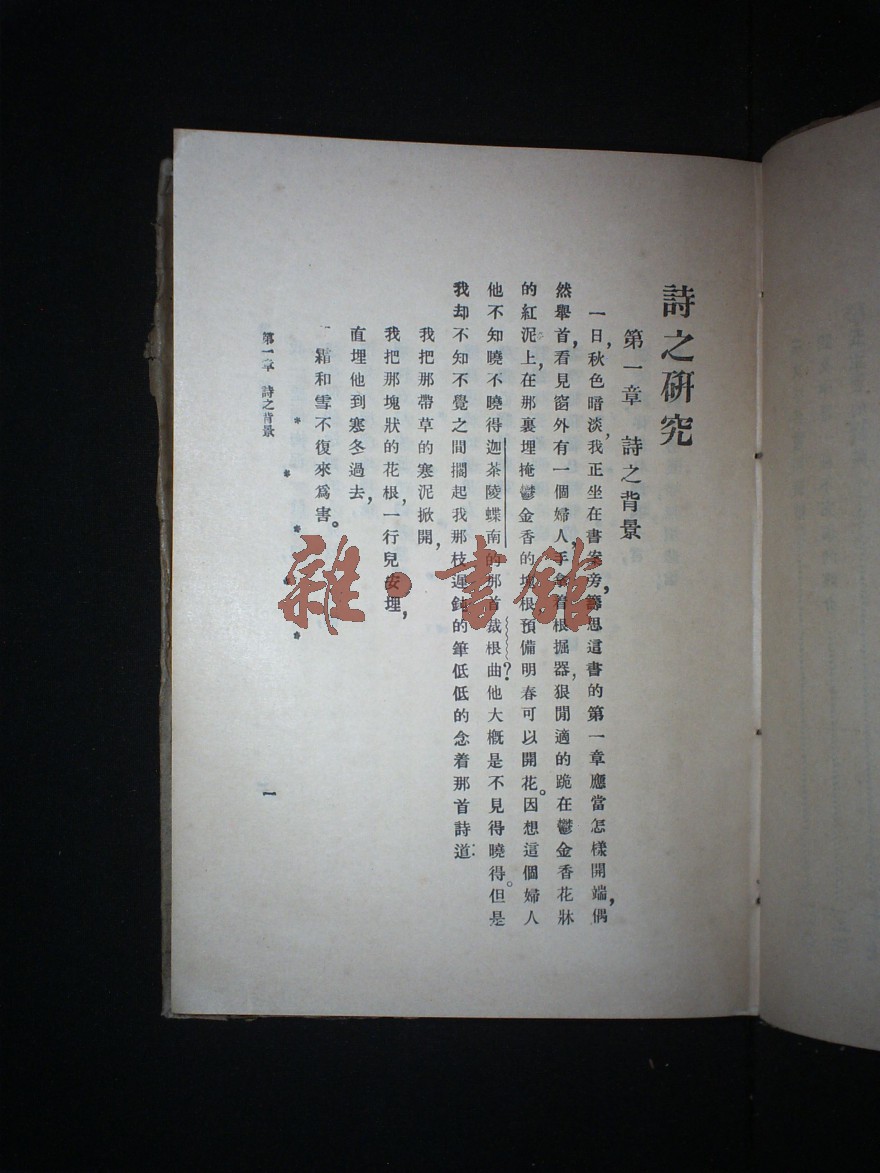 詩之研究
第一章 詩之背景
一日,秋色暗淡,我正坐在書案旁,籌思這書的第一章應當怎樣開端,偶
然舉首,看見窗外有一個婦人,手拿着根掘器,狠閒適的跪在鬱金香花牀
的紅泥上,在那裏埋掩鬱金香的塊根,預備明春可以開花。因想這個婦人
他不知曉不曉得迦茶陵蝶南的那首裁根曲?他大概是不見得曉得。但是
我却不知不覺之間擱起我那枝遲鈍的筆低低的念着那首詩道:
我把那帶草的寒泥掀開,
我把那塊狀的花根,一行兒安埋,
直埋他到寒冬過去,
霜和雪不復來為害。
* * * * *
第一章 詩之背景
一
雜·書館